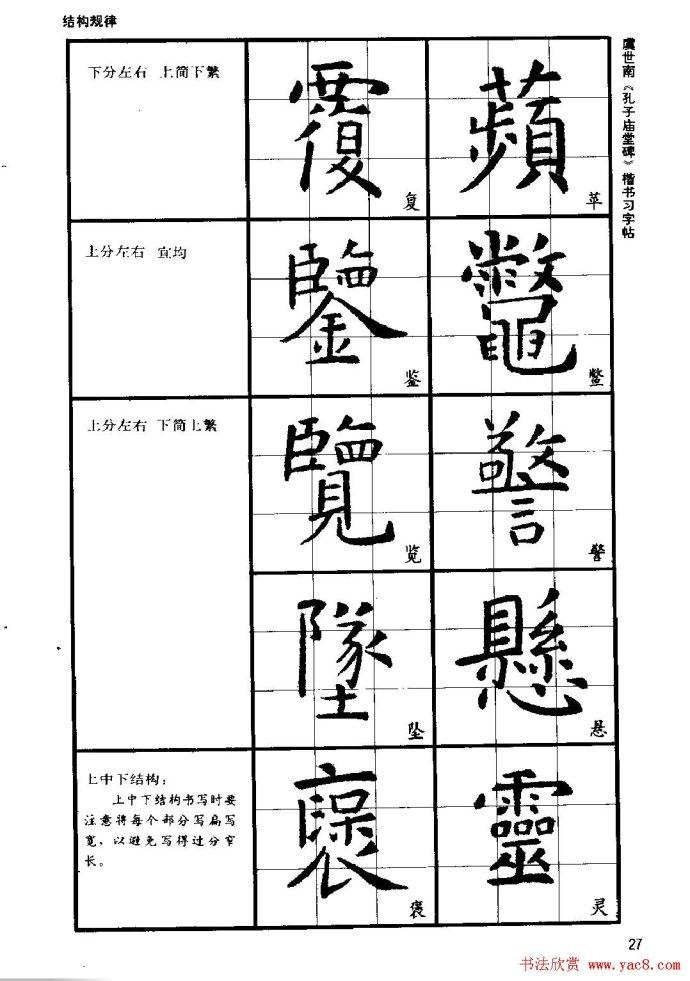 结构规律
虞世南《孔子庙堂碑》楷书习字帖
下分左右 上简下繁
覆 蘋
复 苹
上分左右 宜均
鑒 鼈
鉴 鳖
上分左右 下简上繁
覽 警
览 警
墜 懸
坠 悬
上中下结构：
上中下结构书写时要
注意将每个部分写扁写
宽，以避免写得过分窄
长。
褒 靈
褒 灵
27
书法欣赏 www.yac8.com